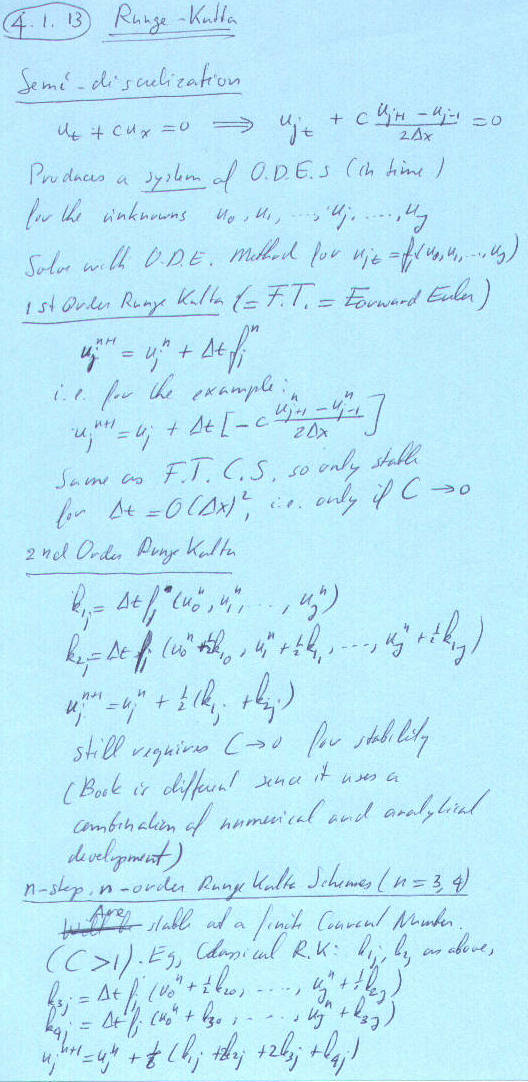 4.1.13 Runge-Kutta
Semi-discretization
u_t + c u_x = 0 ⟹ u_{j t} + c (u_{j+1} - u_{j-1})/(2Δx) = 0
Produces a system of O.D.E.s (in time)
for the unknowns u_0, u_1, ..., u_j, ..., u_J
Solve with O.D.E. method for u_{j t} = f_j(u_0, u_1, ..., u_J)
1st Order Runge Kutta (= F.T. = Forward Euler)
u_j^{n+1} = u_j^n + Δt f_j^n
i.e. for the example:
u_j^{n+1} = u_j + Δt [-c (u_{j+1}^n - u_{j-1}^n)/(2Δx)]
Same as F.T.C.S. so only stable
for Δt = O(Δx)^2, i.e. only if C → 0
2nd Order Runge Kutta
k_{1j} = Δt f_j (u_0^n, u_1^n, ..., u_J^n)
k_{2j} = Δt f_j (u_0^n + ½k_{10}, u_1^n + ½k_{11}, ..., u_J^n + ½k_{1J})
u_j^{n+1} = u_j^n + ½(k_{1j} + k_{2j})
still requires C → 0 for stability
(Book is different since it uses a
combination of numerical and analytical
development)
n-step, n-order Runge Kutta Schemes (n = 3, 4)
Are stable at a finite Courant Number.
(C > 1). Eg, Classical R.K: k_{1j}, k_{2j} as above,
k_{3j} = Δt f_j (u_0^n + ½k_{20}, ..., u_J^n + ½k_{2J})
k_{4j} = Δt f_j (u_0^n + k_{30}, ..., u_J^n + k_{3J})
u_j^{n+1} = u_j^n + ⅙ (k_{1j} + 2k_{2j} + 2k_{3j} + k_{4j})